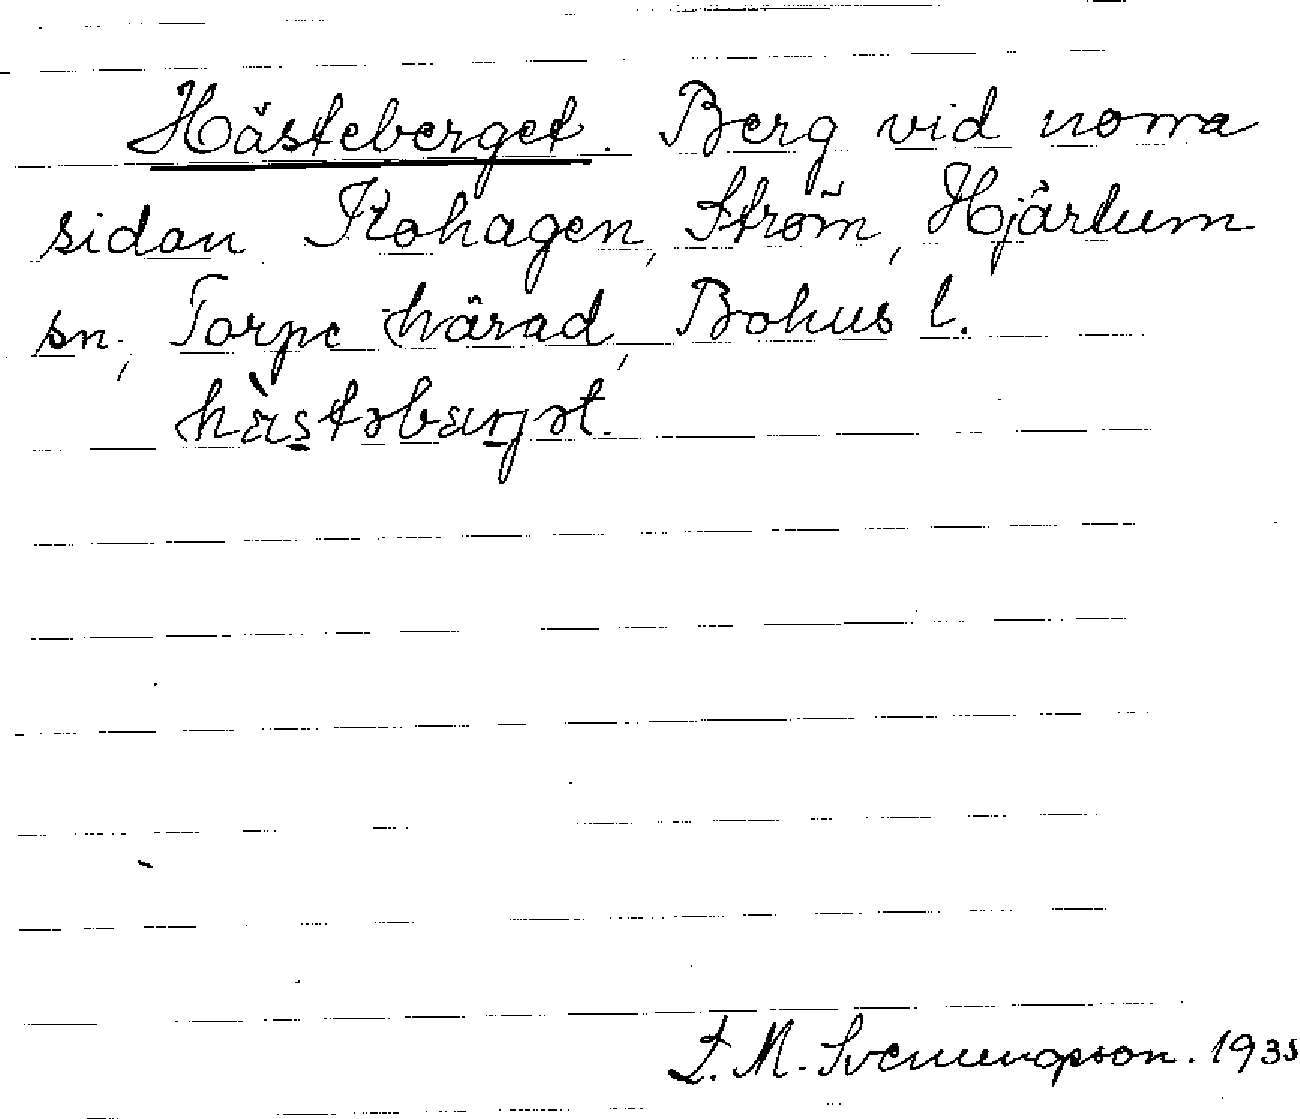 Hästeberget. Berg vid norra
sidan Kohagen, Ström, Hjärtum
sn., Torpe härad, Bohus l.
hàstəbærjət.
T. M. Svenungsson. 1935